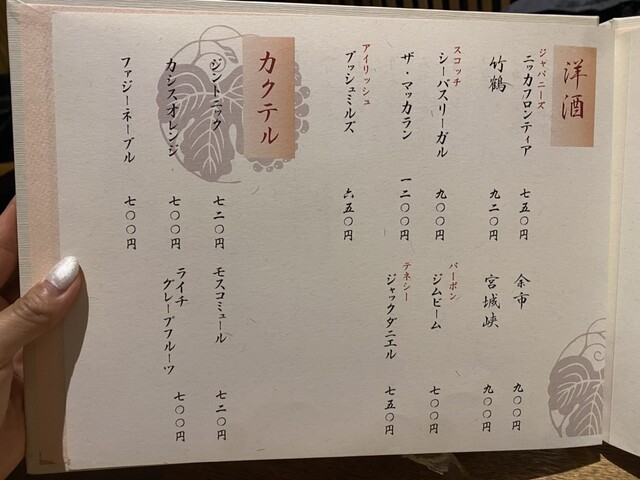 洋酒
ジャパニーズ
ニッカフロンティア 七五〇円
余市 九〇〇円
竹鶴 九二〇円
宮城峡 九〇〇円
スコッチ
シーバスリーガル 九〇〇円
バーボン
ジムビーム 七〇〇円
ザ・マッカラン 一二〇〇円
テネシー
ジャックダニエル 七五〇円
アイリッシュ
ブッシュミルズ 六五〇円
カクテル
ジントニック 七二〇円
モスコミュール 七二〇円
カシスオレンジ 七〇〇円
ライチ
グレープフルーツ 七〇〇円
ファジーネーブル 七〇〇円